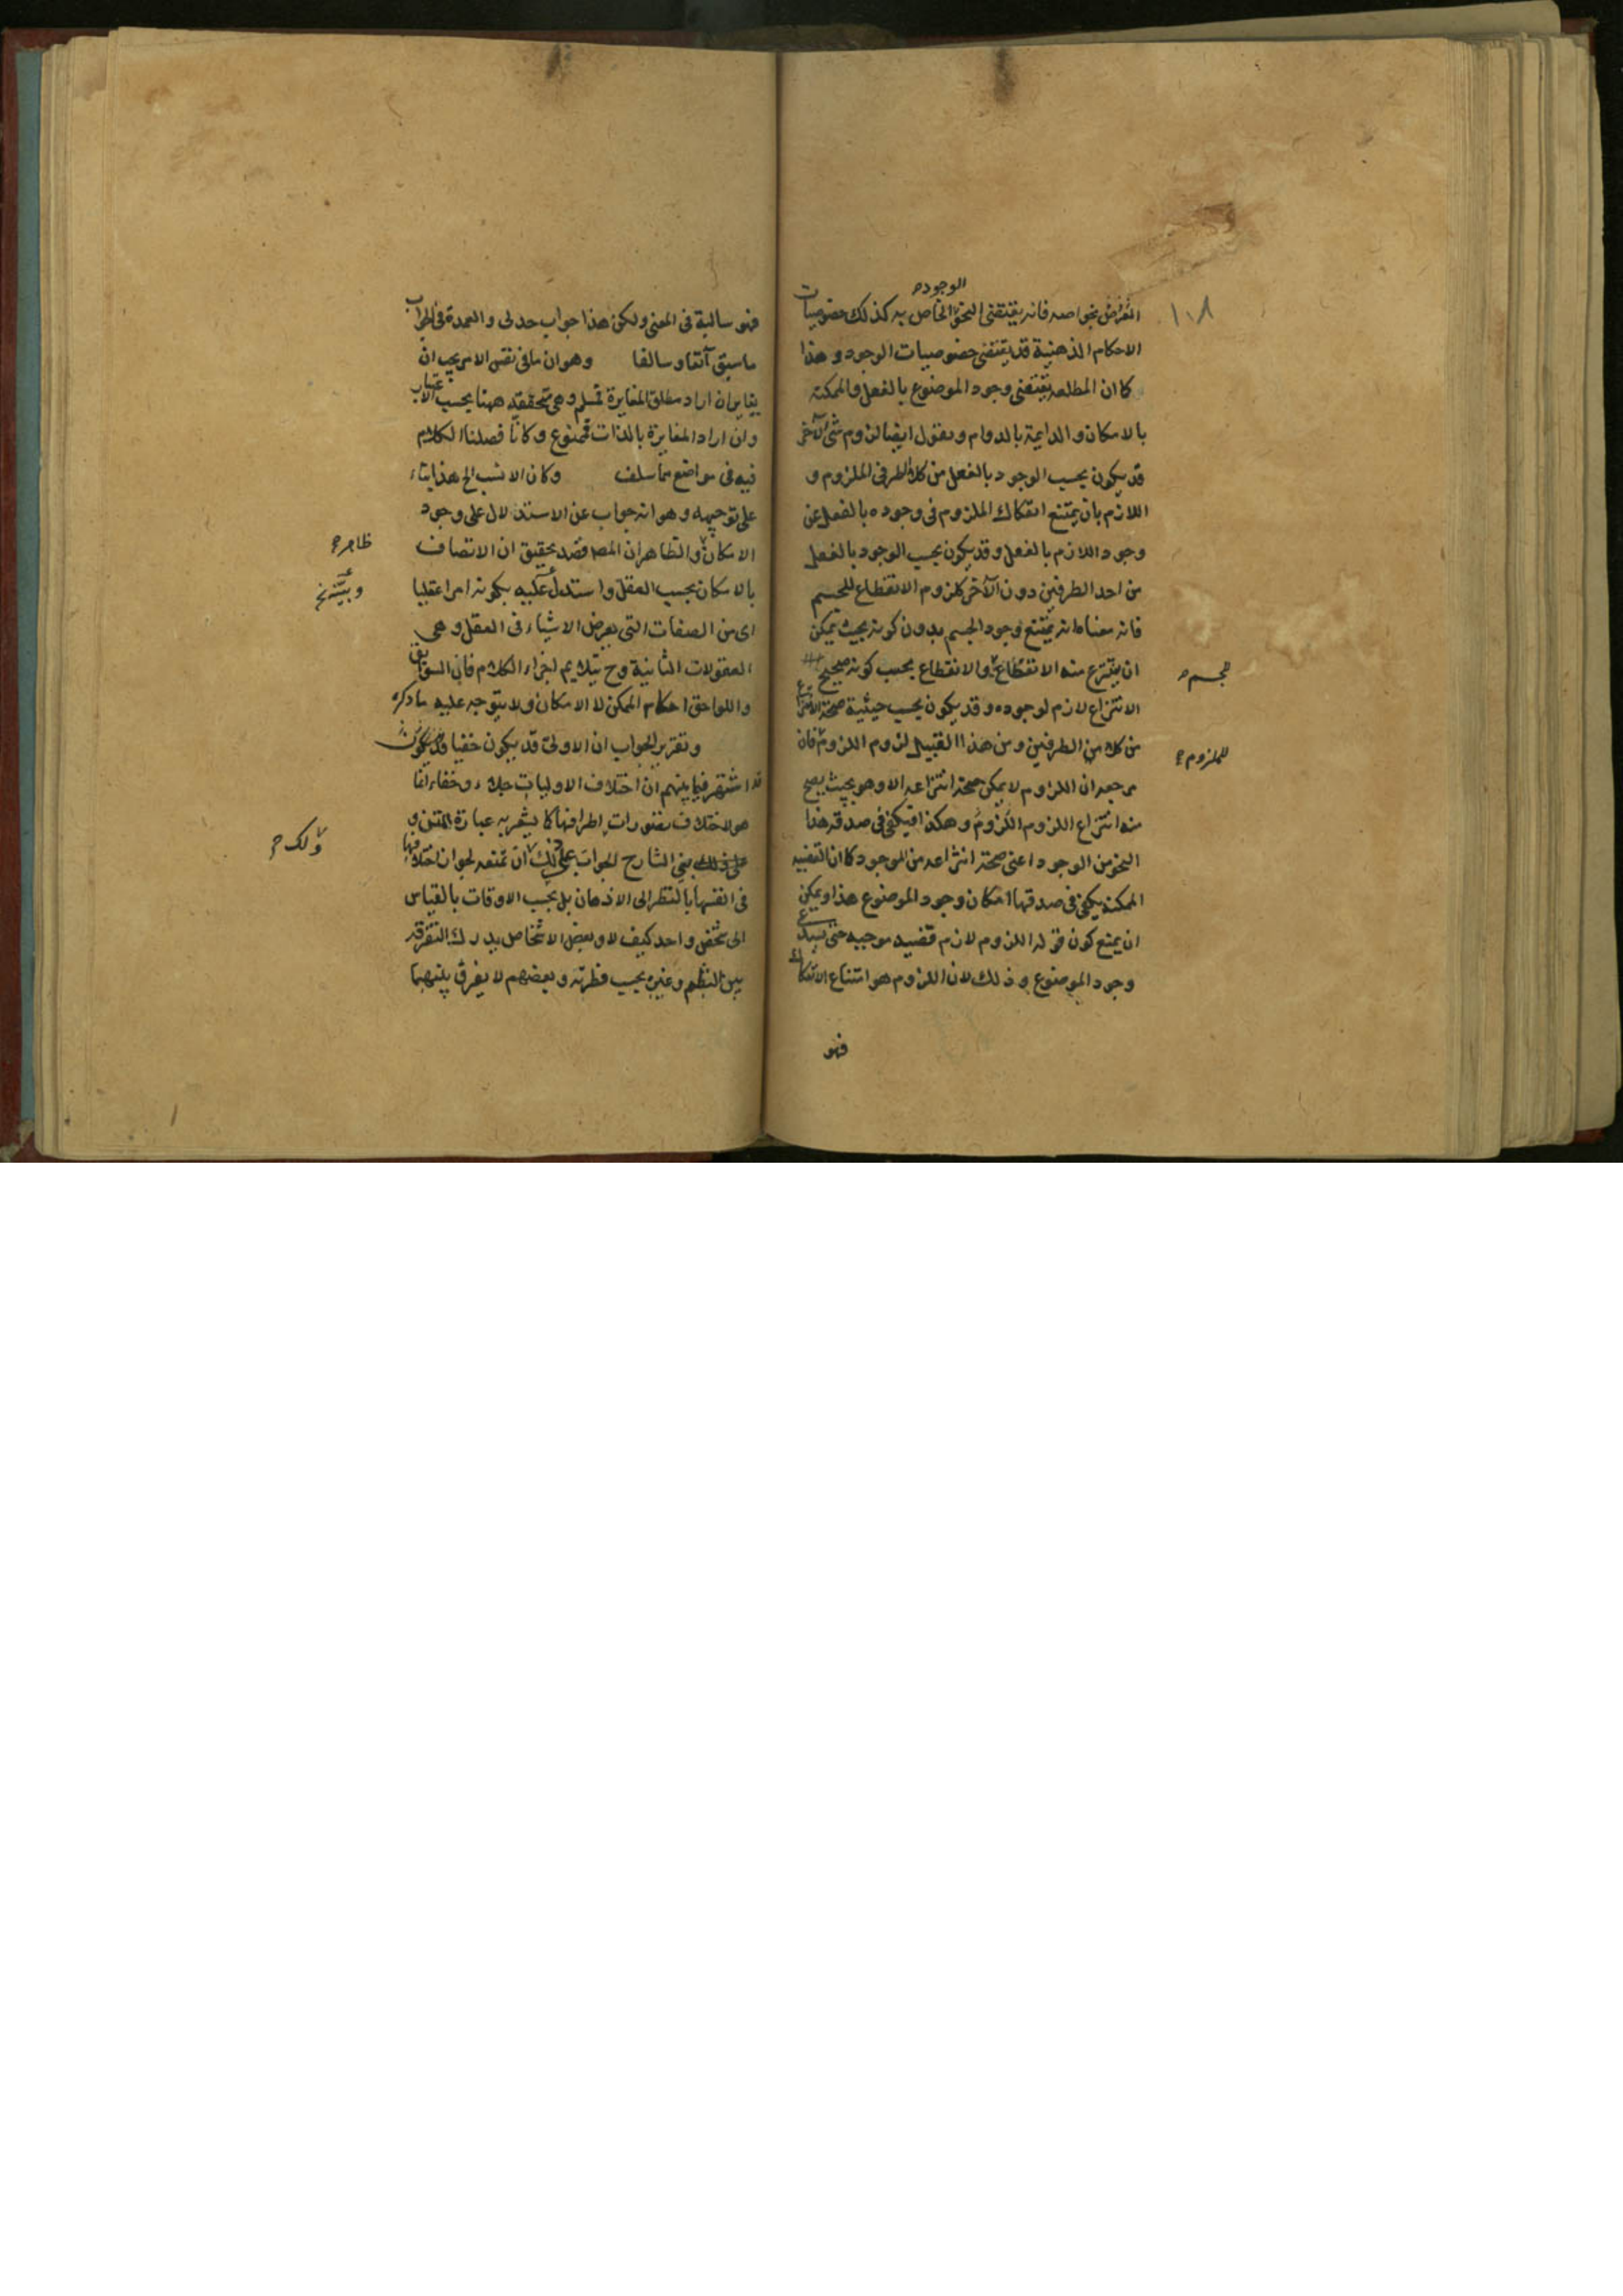 ١٠٨
الوجوده
التعرض بخواصه فانه يقتضى النحو الخاص به كذلك خصوصيات
الاحكام الذهنية قد يقتضى خصوصيات الوجود و هذا
كما ان المطلقه يقتضى وجود الموضوع بالفعل والممكنة
بالامكان والدايمة بالدوام ونقول ايضا لزوم شئ لآخر
قد يكون بحسب الوجود بالفعل من كلا الطرفى الملزوم و
اللازم بان يمتنع انفكاك الملزوم فى وجوده بالفعل عن
وجود اللازم بالفعل وقد يكون بحسب الوجود بالفعل
من احد الطرفين دون الآخر كلزوم الانقطاع للجسم
فانه معناه انه يمتنع وجود الجسم بدون كونه بحيث يمكن
ان ينتزع منه الانقطاع والانقطاع بحسب كونه صحيح
للجسم
الانتزاع لازم لوجوده وقد يكون بحسب حيثية صحة الانتزاع
من كلا من الطرفين ومن هذا القبيل لزوم اللزوم فان
للملزوم
مرجعه ان اللزوم لا يمكن صحة انتزاعه الا وهو بحيث يصح
منه انتزاع اللزوم اللزوم وهكذا فيكفى فى صدقه هذا
النحو من الوجود اعنى صحة انتزاعه من الموجود كما ان القضيه
الممكنة يكفى فى صدقها امكان وجود الموضوع هذا ويمكن
ان يمنع كون قوله اللزوم لازم قضيه موجبه حتى يستدعى
وجود الموضوع وذلك لان اللزوم هو امتناع الانفكاك
فهو
فهو سالبة فى المعنى ولكن هذا جواب جدلى والعمدة فى الجواب
ما سبق آنفا وسالفا وهو ان ما فى نفس الامر يجب ان
يغاير ان اراد مطلق المغايرة فمسلم وهى متحققه ههنا بحسب الاعتبار
وان اراد المغايرة بالذات فممنوع وكانا فصلنا الكلام
فيه فى مواضع مما سلف وكان الانسب الخ هذا بناء
على توجيهه وهو انه جواب عن الاستدلال على وجود
الامكان والظاهر ان المصه قصد تحقيق ان الاتصاف
ظاهر
بالامكان بحسب العقل واستدل عليه بكونه امرا عقليا
اى من الصفات التى يعرض الاشياء فى العقل وهى
المعقولات الثانية وح يتلايم اجزاء الكلام فان السوابق
واللواحق احكام الممكن لا الامكان ولا يتوجه عليه ما ذكره
وتقرير الجواب ان الاولى قد يكون خفيا
قد اشتهر فيما بينهم ان اختلاف الاوليات جلاء وخفاء انما
هو لاختلاف تصورات اطرافها كما يشعر به عبارة المتن و
بنى الشارح الجواب على ذلك ان تمنعه لجواز اختلافها
ولك
فى انفسها بالنظر الى الاذهان بل بحسب الاوقات بالقياس
الى شخص واحد كيف لا وبعض الاشخاص يدرك التفرقه
بين النظم وغيره بحسب فطرته وبعضهم لا يفرق بينهما